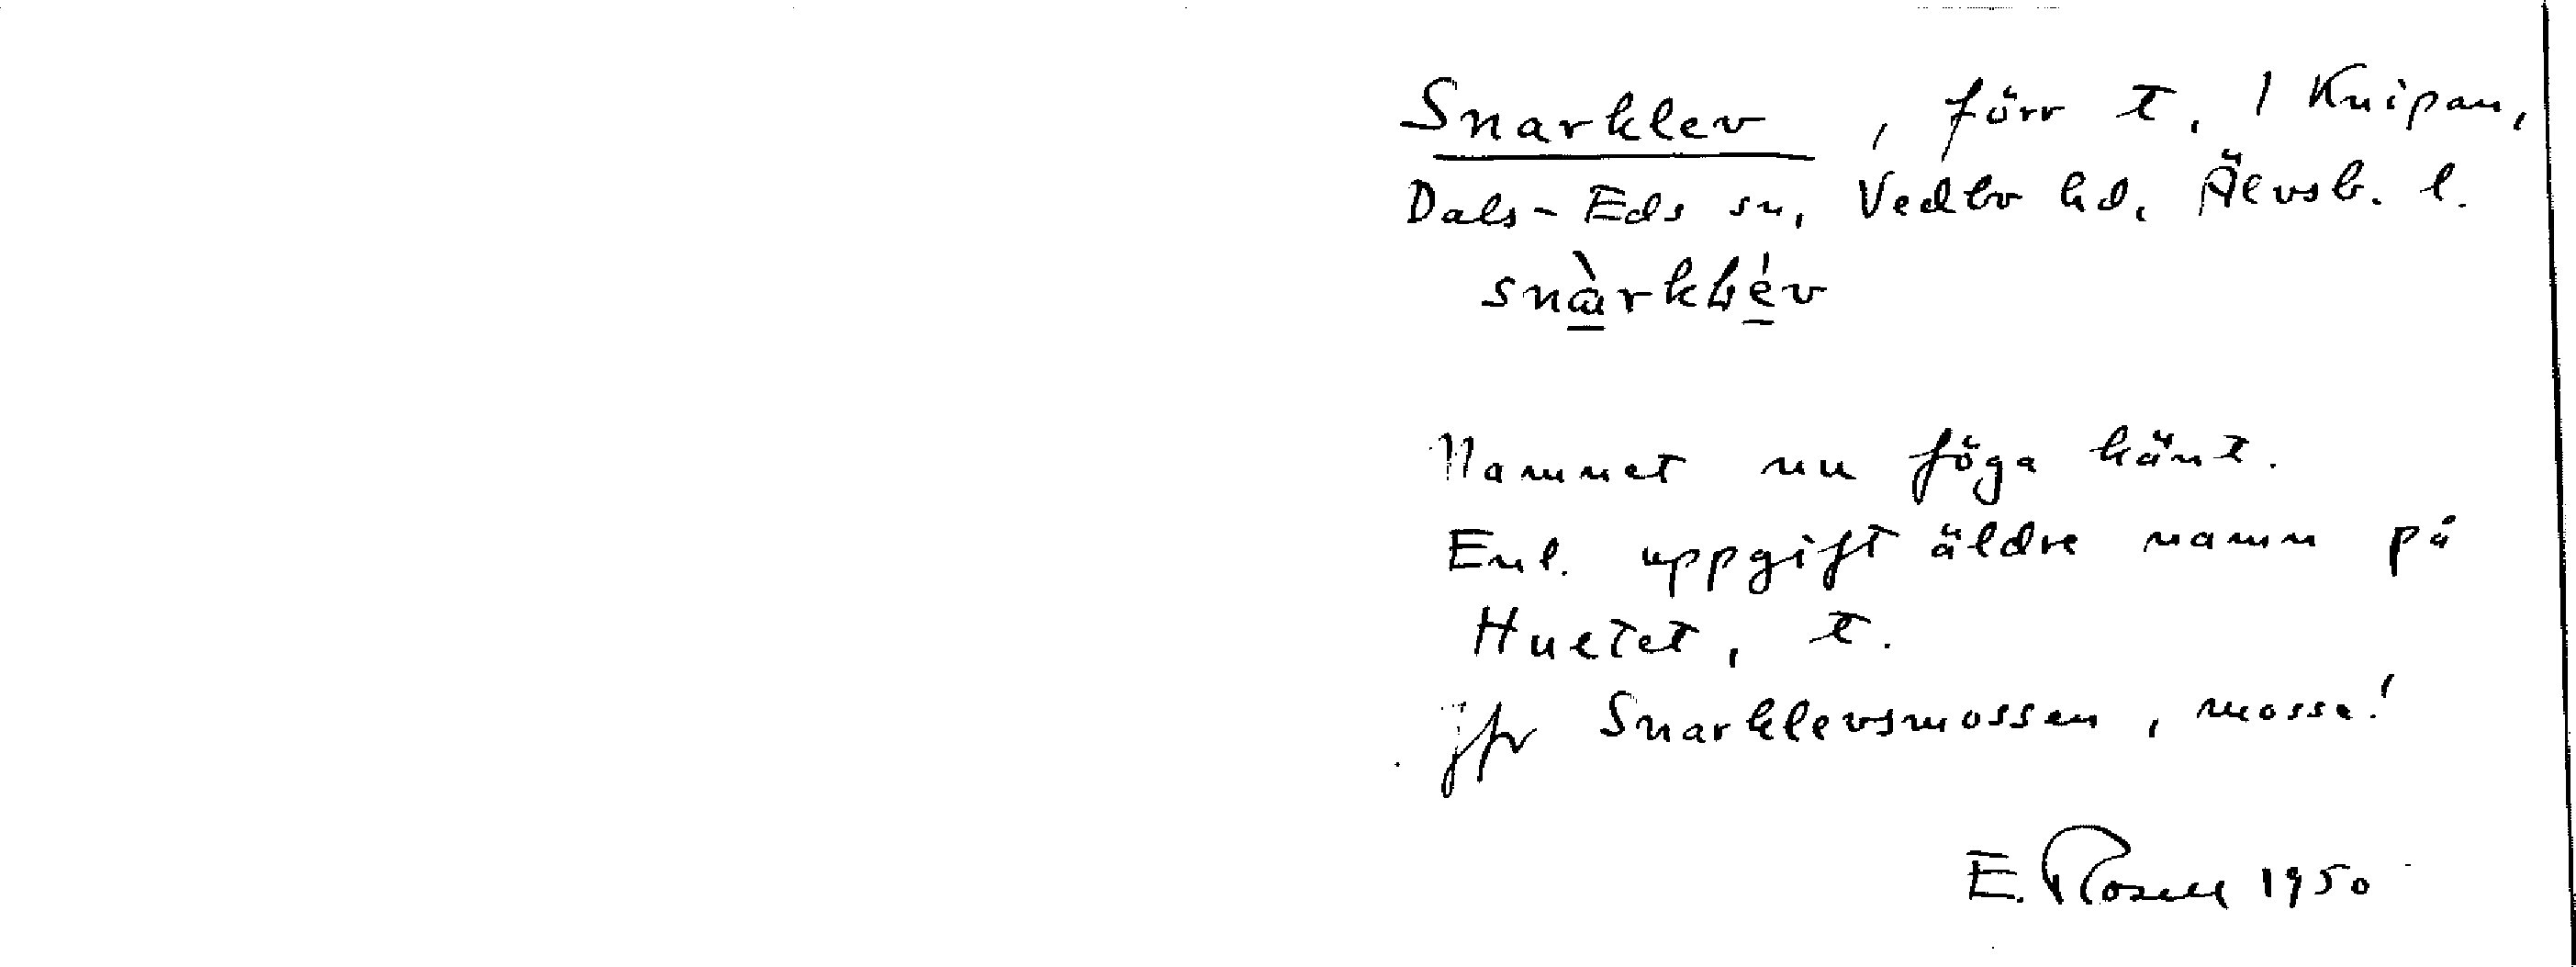 Snarklev, förr t. / Knipan,
Dals-Eds sn, Vedbo hd, Älvsb. l.
snàrkłév
Namnet nu föga känt.
Enl. uppgift äldre namn på
Hultet, t.
Jfr Snarklevsmossen, mosse!
E. Rosell 1950